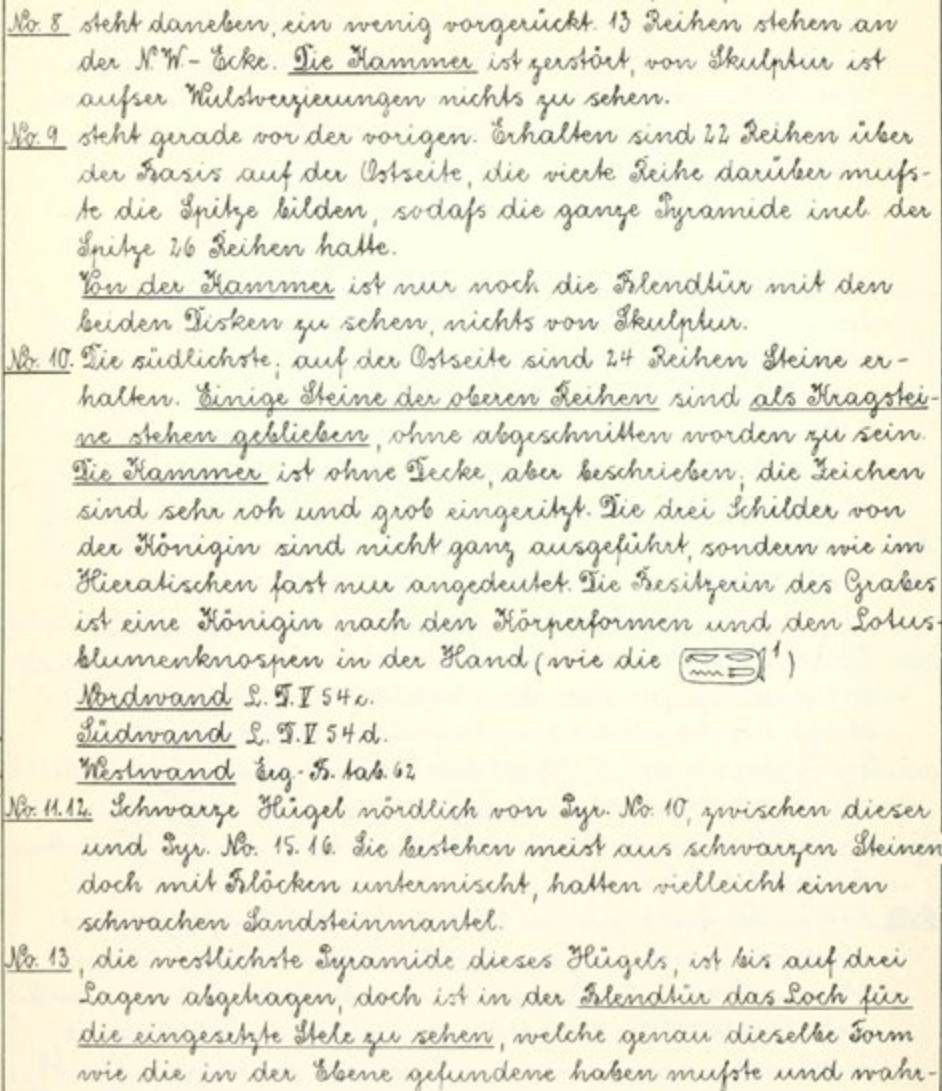 No. 8 steht daneben, ein wenig vorgerückt. 13 Reihen stehen an
der N.W.- Ecke. Die Kammer ist zerstört, von Skulptur ist
aufser Wulstverzierungen nichts zu sehen.
No. 9 steht gerade vor der vorigen. Erhalten sind 22 Reihen über
der Basis auf der Ostseite, die vierte Reihe darüber mufs-
te die Spitze bilden, sodafs die ganze Pyramide incl. der
Spitze 26 Reihen hatte.
Von der Kammer ist nur noch die Blendtür mit den
beiden Disken zu sehen, nichts von Skulptur.
No. 10. Die südlichste; auf der Ostseite sind 24 Reihen Steine er-
halten. Einige Steine der oberen Reihen sind als Kragstei-
ne stehen geblieben, ohne abgeschnitten worden zu sein.
Die Kammer ist ohne Decke, aber beschrieben; die Zeichen
sind sehr roh und grob eingeritzt. Die drei Schilder von
der Königin sind nicht ganz ausgeführt, sondern wie im
Hieratischen fast nur angedeutet. Die Besitzerin des Grabes
ist eine Königin nach den Körperformen und den Lotus-
blumenknospen in der Hand (wie die 1)
Nordwand L. D. V 54 c.
Südwand L. D. V 54 d.
Westwand Erg.- B. tab. 62
No. 11.12. Schwarze Hügel nördlich von Pyr. No. 10, zwischen dieser
und Pyr. No. 15. 16. Sie bestehen meist aus schwarzen Steinen
doch mit Blöcken untermischt, hatten vielleicht einen
schwachen Sandsteinmantel.
No. 13, die westlichste Pyramide dieses Hügels, ist bis auf drei
Lagen abgetragen, doch ist in der Blendtür das Loch für
die eingesetzte Stele zu sehen, welche genau dieselbe Form
wie die in der Ebene gefundene haben mufste und wahr-